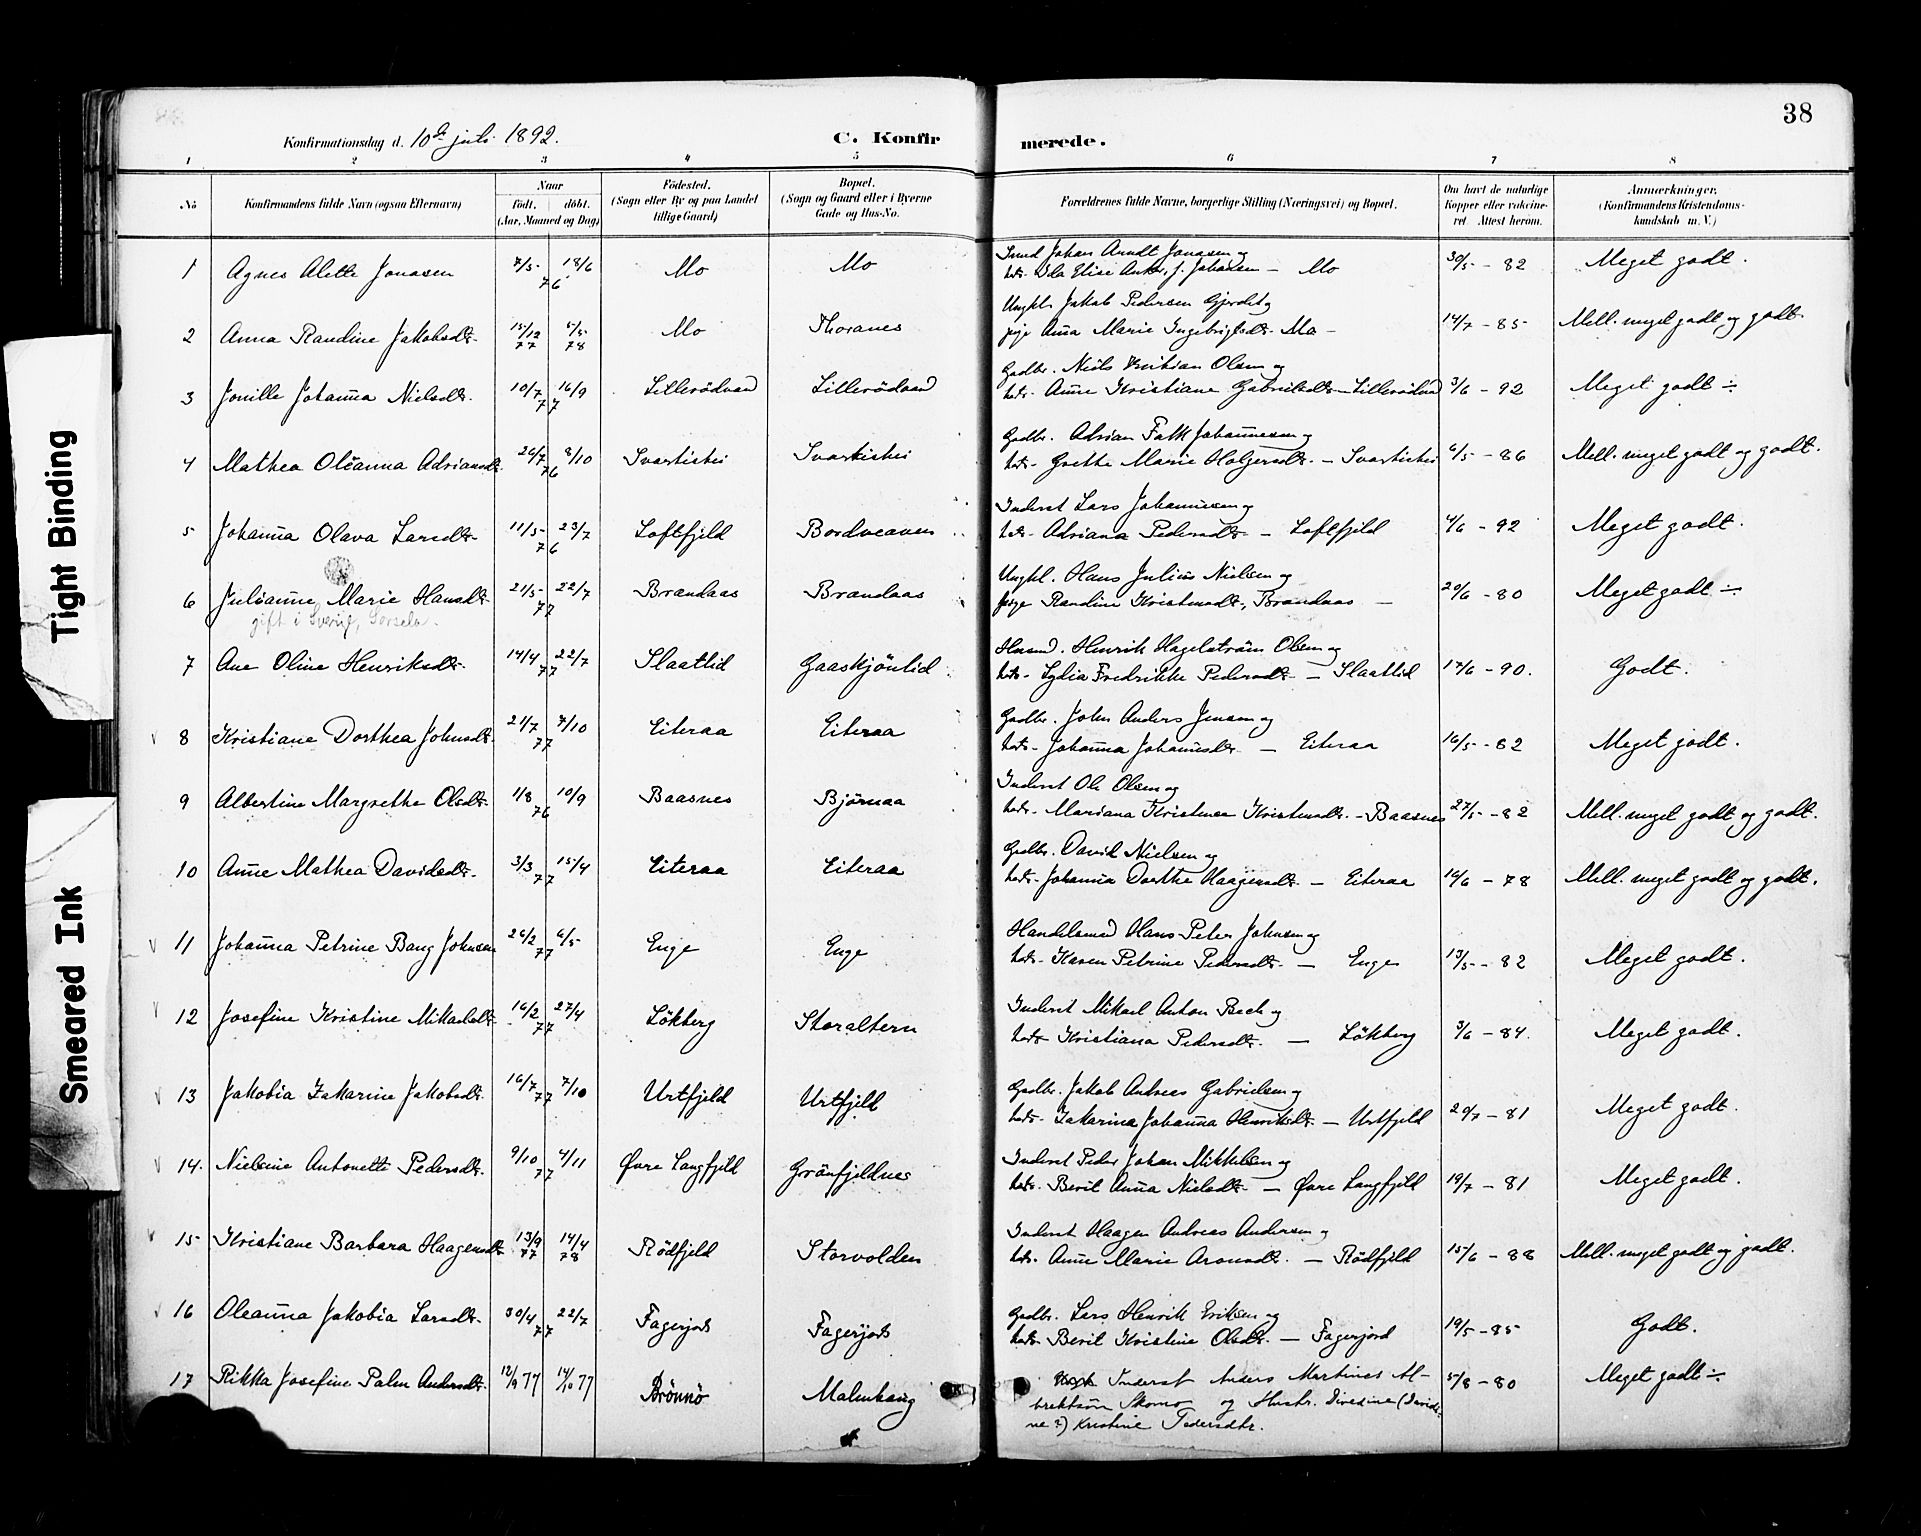 38
Konfirmationsdag d. 10de juli 1892. C. Konfirmerede.
1 2 3 4 5 6 7 8
No Konfirmandens fulde Navn (ogsaa Efternavn) Naar født. døbt. (Aar, Maaned og Dag) Fødested. (Sogn eller By og paa Landet tillige Gaard) Bopæl. (Sogn og Gaard eller i Byerne Gade og Hus-No. Forældrenes fulde Navne, borgerlige Stilling (Næringsvei) og Bopæl. Om havt de naturlige Kopper eller vakcineret. Attest herom. Anmærkninger. (Konfirmandens Kristendomskundskab m. V.)
1 Agnes Alette Jonasen 7/5 18/6 76 Mo Mo Smed Johan Arndt Jonasen og
Mo 30/5 - 82 Meget godt.
2 Anna Randine Jakobsdtr. 15/12 77 5/5 78 Mo Thoranes Ungkl. Jakob Pedersen Gjerdet og
pige Anna Marie Ingebrigtsdtr. Mo - 14/7 - 85 Mell. meget godt og godt.
3 Jonille Johanna Nielsdtr. 10/7 16/9 77 Lillerödvand Lillerödvand Gadbr. Niels Kristian Olsen og
hstr. Anne Kristiane Gabrielsdtr - Lillerödvand 3/6 - 92 Meget godt ÷
4 Mathea Oleanna Adriansdtr. 26/7 8/10 76 Svartisdei Svartisdei Gadbr. Adrian Falk Johannesen og
hstr. Grethe Marie Holgersdtr. - Svartisdei 6/5 - 86 Mell. meget godt og godt.
5 Johanna Olava Larsdtr. 11/5 23/7 76 Loftfjeld Bordveaven Inderst Lars Johannesen og
hstr. Adriana Pedersdtr. - Loftfjeld 4/6 - 92 Meget godt.
6 Julianne Marie Hansdtr. 21/5 22/7 77 Brandaas Brandaas Ungkl. Hans Julius Nielsen og
gift i Sverig, Sorsele. pige Randine Kristensdtr., Brandaas - 20/6 - 80 Meget godt ÷
7 Ane Oline Henriksdtr. 14/4 22/7 77 Slaatlid Gaaskjönlid. Husmd. Henrik Hagelström Olsen og
hstr. Lydia Fredrikke Pedersdtr. - Slaatlid 17/6 - 90. Godt.
8 Kristiane Dorthea Johnsdtr. 21/7 7/10 77 Eiteraa Eiteraa Gadbr. John Anders Jensen og
hstr. Johanna Johannesdtr. - Eiteraa 16/5 - 82 Meget godt.
9 Albertine Margrethe Olsdtr. 1/8 10/9 76 Baasnes Bjørnaa Inderst Ole Olsen og
hstr. Mariana Kristence Kristensdtr. - Baasnes 27/5 - 82 Mell. meget godt og godt.
10 Anne Mathea Davidsdtr. 3/3 15/4 77 Eiteraa Eiteraa Gadbr. David Nielsen og
hstr. Johanna Dorthe Haagensdtr. - Eiteraa 14/6 - 78 Mell. meget godt og godt.
11 Johanna Petrine Bang Johnsen 26/2 6/5 77 Enge Enge Handelsmd Hans Peter Johnsen og
hstr. Karen Petrine Pedersdtr. - Enge 13/5 - 82 Meget godt.
12 Josefine Kristine Mikaelsdtr. 16/2 27/4 77 Lökberg Storaltern Inderst Mikael Anton Bech og
hstr. Kristiana Pedersdtr. - Lökberg 3/6 - 84. Meget godt.
13 Jakobia Zakarine Jakobsdtr. 16/7 7/10 77 Urtfjeld Urtfjeld Gadbr. Jakob Andreas Gabrielsen og
hstr. Zakarina Johanna Henriksdtr. - Urtfjeld 20/7 - 81 Meget godt.
14. Nielsine Antonette Pedersdtr. 9/10 4/11 77 Øvre Langfjeld Grönfjeldnes Inderst Peder Johan Mikkelsen og
hstr. Berit Anna Nielsdtr. - Øvre Langfjeld 19/7 - 81 Meget godt.
15 Kristiane Barbara Haagensdtr. 13/9 77 14/4 78 Rödfjeld Storvolden Inderst Haagen Andreas Andersen og
hstr. Anne Marie Aronsdtr. - Rödfjeld 15/6 - 88 Mell. meget godt og godt.
16 Oleanna Jakobia Larsdtr. 30/4 22/7 77 Fagerjord Fagerjord Gadbr. Lars Henrik Eriksen og
hstr. Berit Kristine Olsdtr. - Fagerjord 19/5 - 85 Godt.
17 Rikka Josefine Palm Andersdtr. 12/9 77 14/10 77 Brönnö Malmhaug Inderst Anders Martines Al-
brektsen Skomo og Hustr. Divesine (Davidi-
ne?) Kristine Pedersdtr. 5/8 - 80 Meget godt ÷
Tight Binding
Smeared Ink